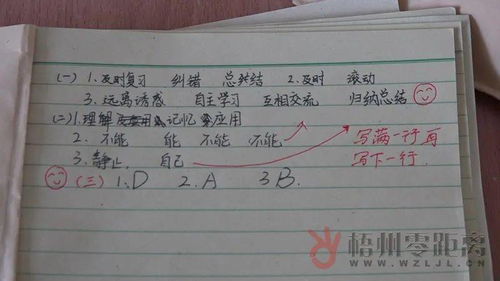 (一) 1.及时复习 纠错 总结 2.及时 滚动
3.远离诱惑 自主学习 互相交流 归纳总结
(二) 1.理解 记忆 应用
2.不能 能 不能 不能
3.静止 自己
写满一行再
写下一行.
(三) 1.D 2.A 3 B.
梧州零距离
WWW.WZLJL.CN